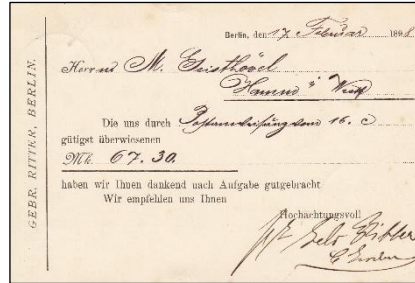 GEBR. RITTER, BERLIN.
Berlin, den 17. Februar 1898
Herrn M. Geisthövel
Hamm i/ Westf
Die uns durch Postanweisung vom 16. c
gütigst überwiesenen
Mk. 67.30.
haben wir Ihnen dankend nach Aufgabe gutgebracht
Wir empfehlen uns Ihnen
Hochachtungsvoll
Gebr Ritter